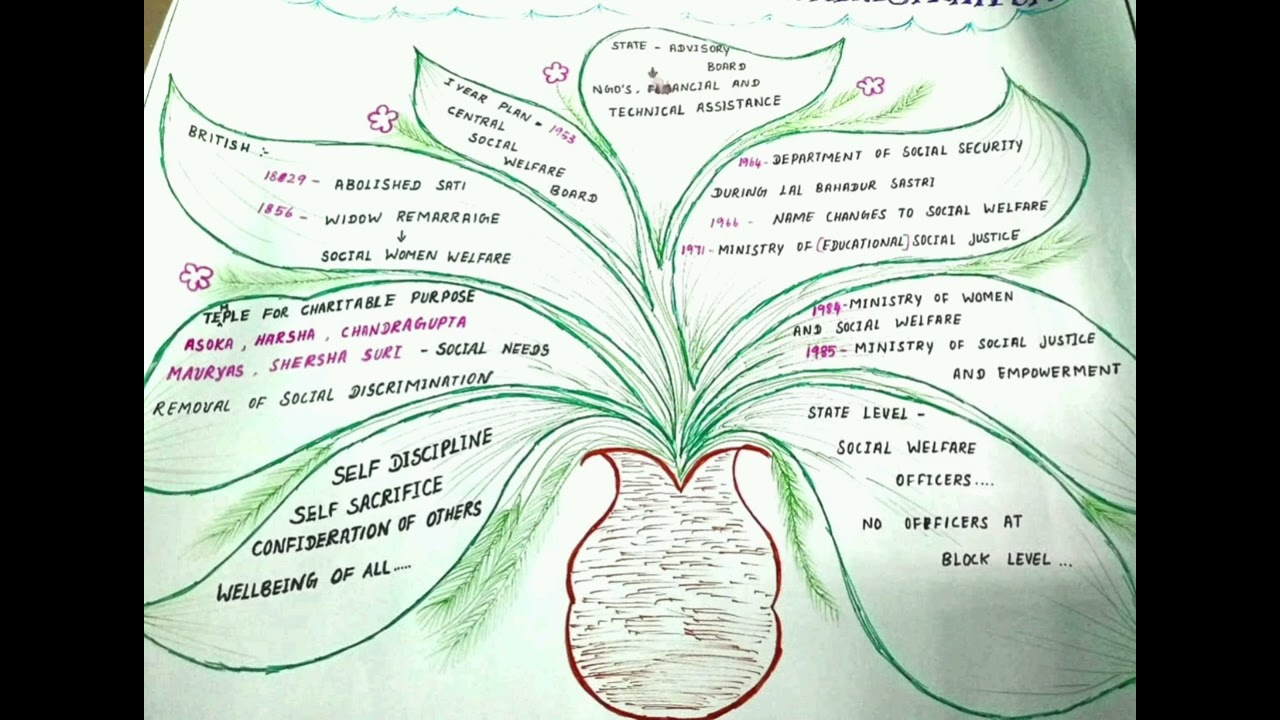 BRITISH :-
1829 - ABOLISHED SATI
1856 - WIDOW REMARRAIGE
↓
SOCIAL WOMEN WELFARE
I YEAR PLAN - 1953
CENTRAL
SOCIAL
WELFARE
BOARD
STATE - ADVISORY
BOARD
↓
NGO'S, FINANCIAL AND
TECHNICAL ASSISTANCE
1964 - DEPARTMENT OF SOCIAL SECURITY
DURING LAL BAHADUR SASTRI
1966 - NAME CHANGES TO SOCIAL WELFARE
1971 - MINISTRY OF [EDUCATIONAL] SOCIAL JUSTICE
TEMPLE FOR CHARITABLE PURPOSE
ASOKA, HARSHA, CHANDRAGUPTA
MAURYAS, SHERSHA SURI - SOCIAL NEEDS
REMOVAL OF SOCIAL DISCRIMINATION
1984 - MINISTRY OF WOMEN
AND SOCIAL WELFARE
1985 - MINISTRY OF SOCIAL JUSTICE
AND EMPOWERMENT
SELF DISCIPLINE
SELF SACRIFICE
CONFIDERATION OF OTHERS
WELLBEING OF ALL.....
STATE LEVEL -
SOCIAL WELFARE
OFFICERS....
NO OFFICERS AT
BLOCK LEVEL ...